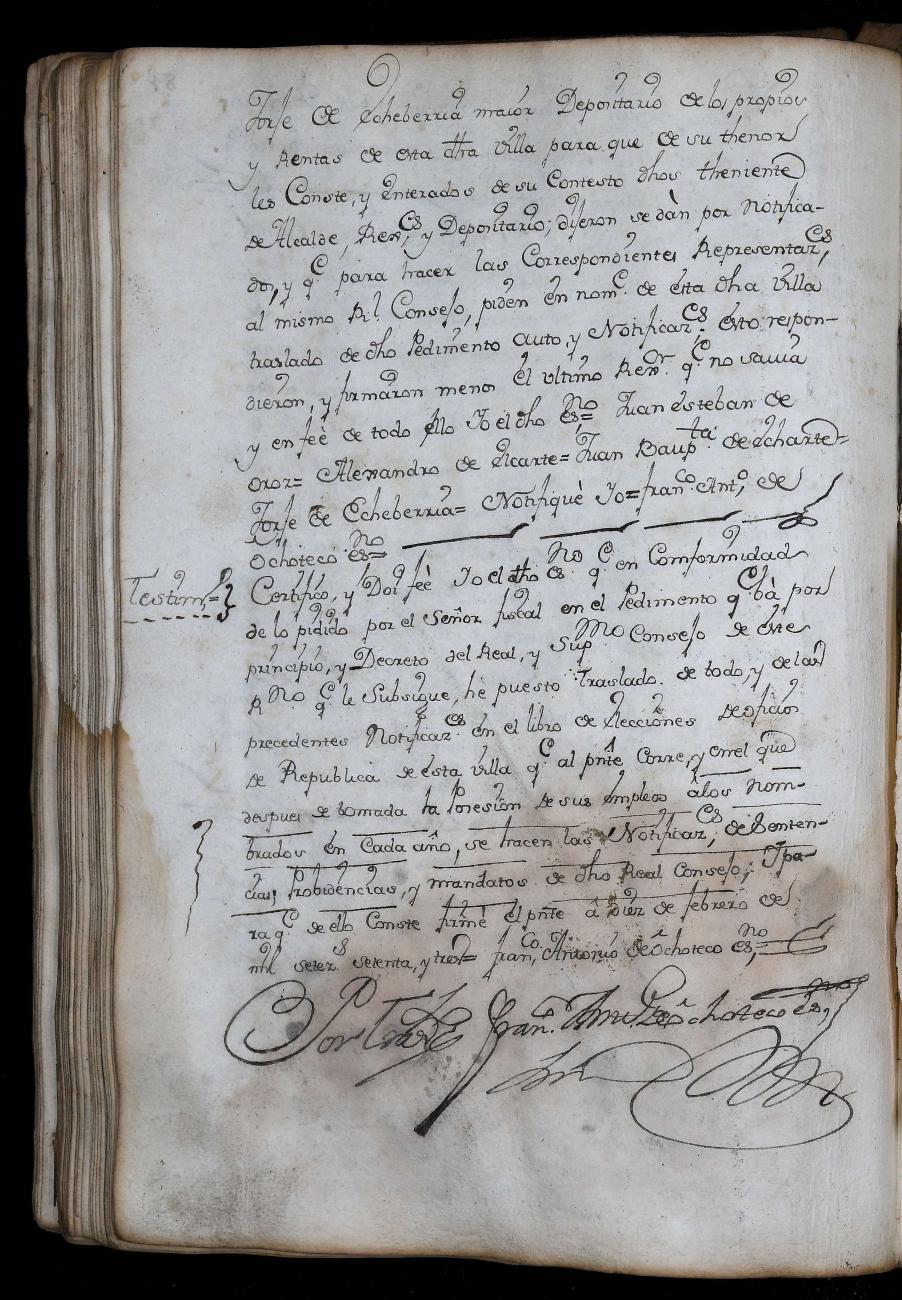 Jorje de Echeberria maior Depositario de los propios
y Rentas de esta dha villa para que de su thenor
les Conste, y Enterados de su Contesto dhos theniente
de Alcalde, Rexres, y Depositario, dijeron se dàn por Notifica-
dos, y qe para hacer las Correspondientes Representazes,
al mismo Rl Consejo, piden en nome de ésta dha villa
traslado de dho Pedimento auto, y Notificazes: ésto respon-
dieron, y firmaron menos él ultimo Rexor qe no savia
y en feè de todo éllo Yo el dho esno= Juan Esteban de
Oroz= Alexandro de Elcarte= Juan Baupta de Echarte=
Jorje de Echeberria= Notifiquè Yo= Franco Anto de
Ochoteco esno=
Testimo=
Certifico, y Doi feè Yo el dho esno qe en Comformidad
de lo pidido por el Señor fiscal en el Pedimento qe bà por
principio, y Decreto del Real, y Supmo Consejo de éste
Rno qe le Subsigue, hè puesto Traslado de todo, y de las
precedentes Notificazes en el libro de Elecciónes de oficios
de Republica de ésta villa qe al pnte Corre, y en el que
despues de tomada la Posesión de sus émpleos álos Nom-
brados én Cada año, se hacen las Notificazes, de Senten-
cias, Probidencias, y mandatos de dho Real Consejo; Y pa-
ra qe de ello Conste firmé el pnte â Diez de febrero de
mil setezs setenta, y tres= franco Antonio de Ochoteco esno=
Por Traslde Frano Anto de Ochoteco esno